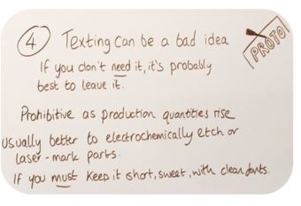 4 Texting can be a bad idea
PROTO
If you don't need it, it's probably
best to leave it.
Prohibitive as production quantities rise
Usually better to electrochemically etch or
laser-mark parts.
If you must keep it short, sweet, with clean fonts.